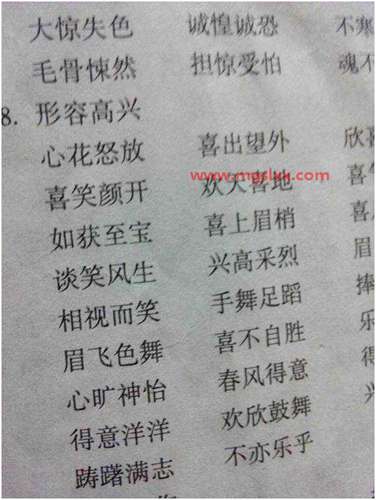 大惊失色 诚惶诚恐 不寒
毛骨悚然 担惊受怕 魂不
8. 形容高兴
心花怒放 喜出望外 欣喜
喜笑颜开 欢天喜地 喜气
如获至宝 喜上眉梢 喜
谈笑风生 兴高采烈 眉
相视而笑 手舞足蹈 捧
眉飞色舞 喜不自胜 乐
心旷神怡 春风得意 得
得意洋洋 欢欣鼓舞
踌躇满志 不亦乐乎